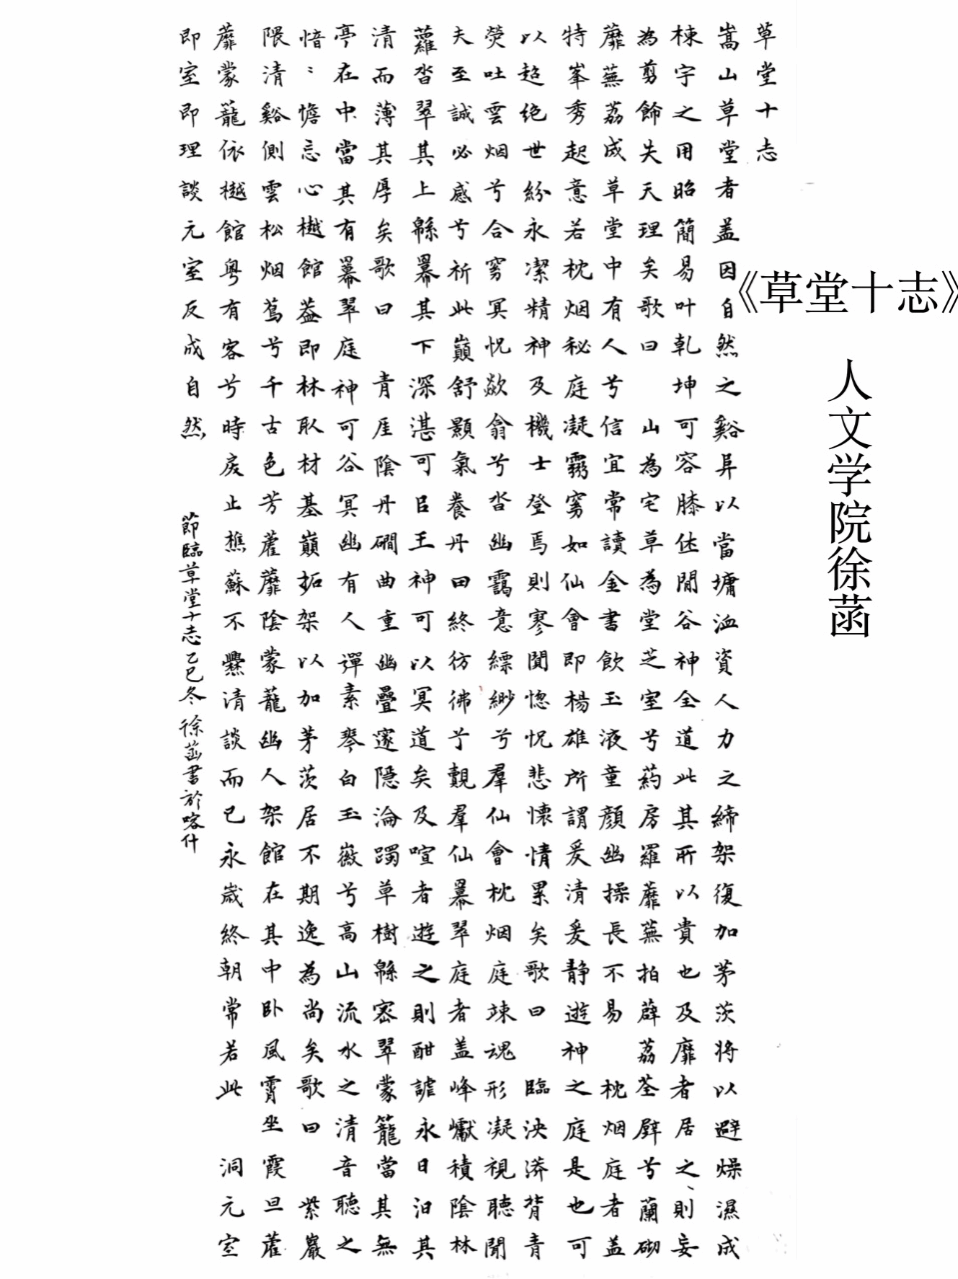 草堂十志
嵩山草堂者盖因自然之谿阜以當墉洫資人力之締架復加茅茨将以避燥濕成
棟宇之用昭簡易叶乹坤可容膝休閒谷神全道此其所以貴也及靡者居之、則妄
為剪飾失天理矣歌曰 山為宅草為堂芝室兮葯房羅蘼蕪拍薜荔荃壁兮蘭砌
蘼蕪荔成草堂中有人兮信宜常讀金書飲玉液童顏幽操長不易 枕烟庭者盖
特峯秀起意若枕烟秘庭凝靄窅如仙會即楊雄所謂爰清爰静遊神之庭是也可
以超绝世紛永潔精神及機士登焉則寥闃惚怳悲懷情累矣歌曰 臨泱漭背青
熒吐雲烟兮合窈冥怳欻翕兮沓幽靄意縹緲兮羣仙會枕烟庭竦魂形凝視聽聞
夫至誠必感兮祈此巔舒顥氣養丹田終彷彿兮覿羣仙羃翠庭者盖峰巘積陰林
蘿沓翠其上緜羃其下深湛可㠯王神可以冥道矣及喧者遊之則酣謔永日汩其
清而薄其厚矣歌曰 青厓陰丹磵曲重幽疊邃隱淪躅草樹緜密翠蒙籠當其無
亭在中當其有羃翠庭神可谷冥幽有人彈素琴白玉徽兮高山流水之清音聽之
愔〻憺忘心樾館葢即林取材基巔拓架以加茅茨居不期逸為尚矣歌曰 紫巖
隈清谿側雲松烟蔦兮千古色芳藋蘼陰蒙蘢幽人架館在其中卧風霄坐霞旦藋
蘼蒙蘢依樾館粤有客兮時戾止樵蘇不爨清談而已永歳終朝常若此 洞元室
即室即理談元室反成自然
節臨草堂十志乙巳冬徐菡書於喀什
《草堂十志》
人文学院徐菡